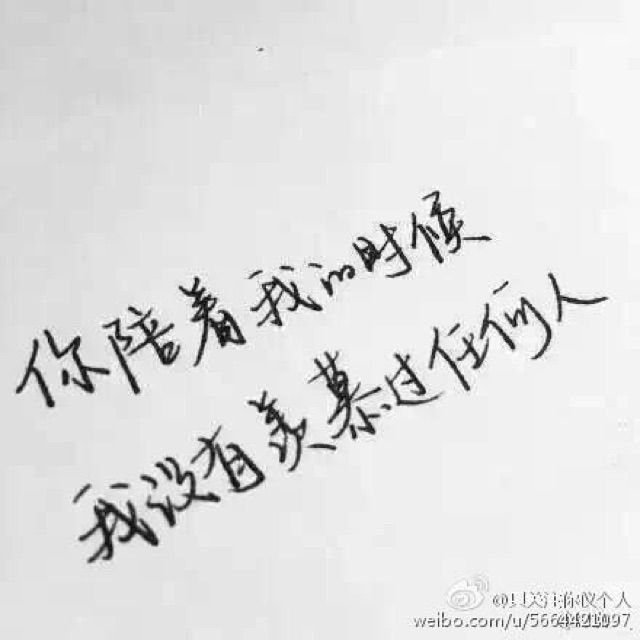 你陪着我的时候
我没有羡慕过任何人
weibo.com/u/5664421097